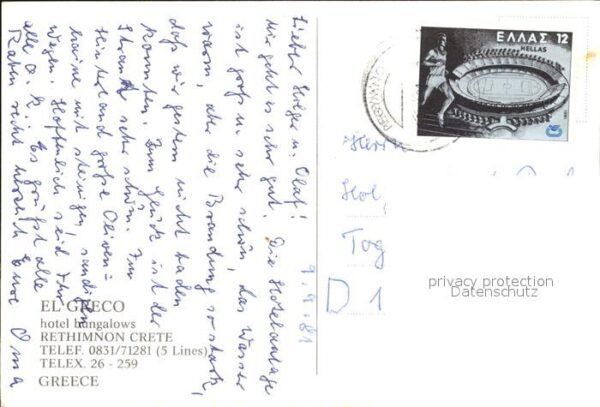 9.9.81
Lieber Holger u. Olaf!
Mir geht es sehr gut. Die Hotelanlage
ist groß u. sehr schön, das Wasser
warm, aber die Brandung so stark,
daß wir gestern nicht baden
konnten. Zum Glück ist der
Strand sehr schön. Im
Hinterland große Oliven=
haine mit steinigen, sandigen
Wegen. Hoffentlich seid Ihr
alle o. k. Es grüßt alle
recht herzlich Eure Oma
EL GRECO
hotel bungalows
RETHIMNON CRETE
TELEF. 0831/71281 (5 Lines)
TELEX. 26 - 259
GREECE
ΕΛΛΑΣ 12
HELLAS
Herrn
Hol
Tog
D 1
privacy protection
Datenschutz